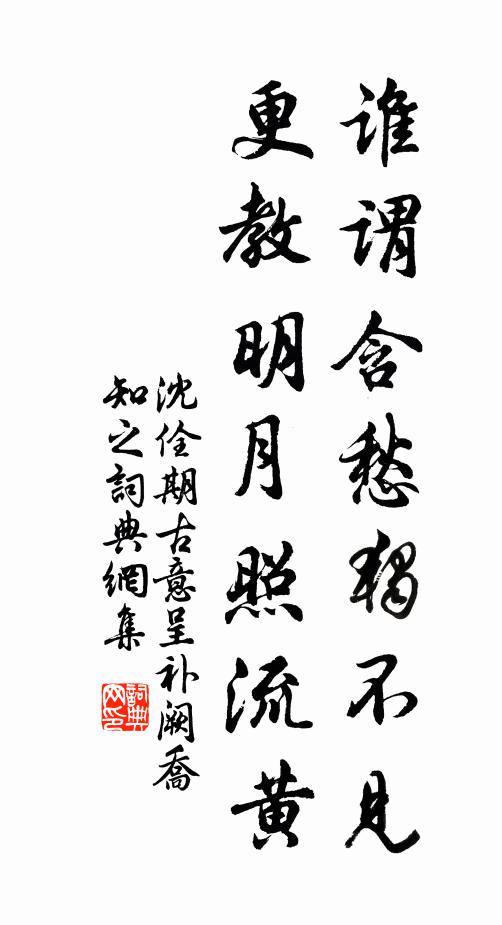 誰謂含愁獨不見
更教明月照流黄
沈佺期古意呈补阙喬
知之詞典網集
詞典
网印